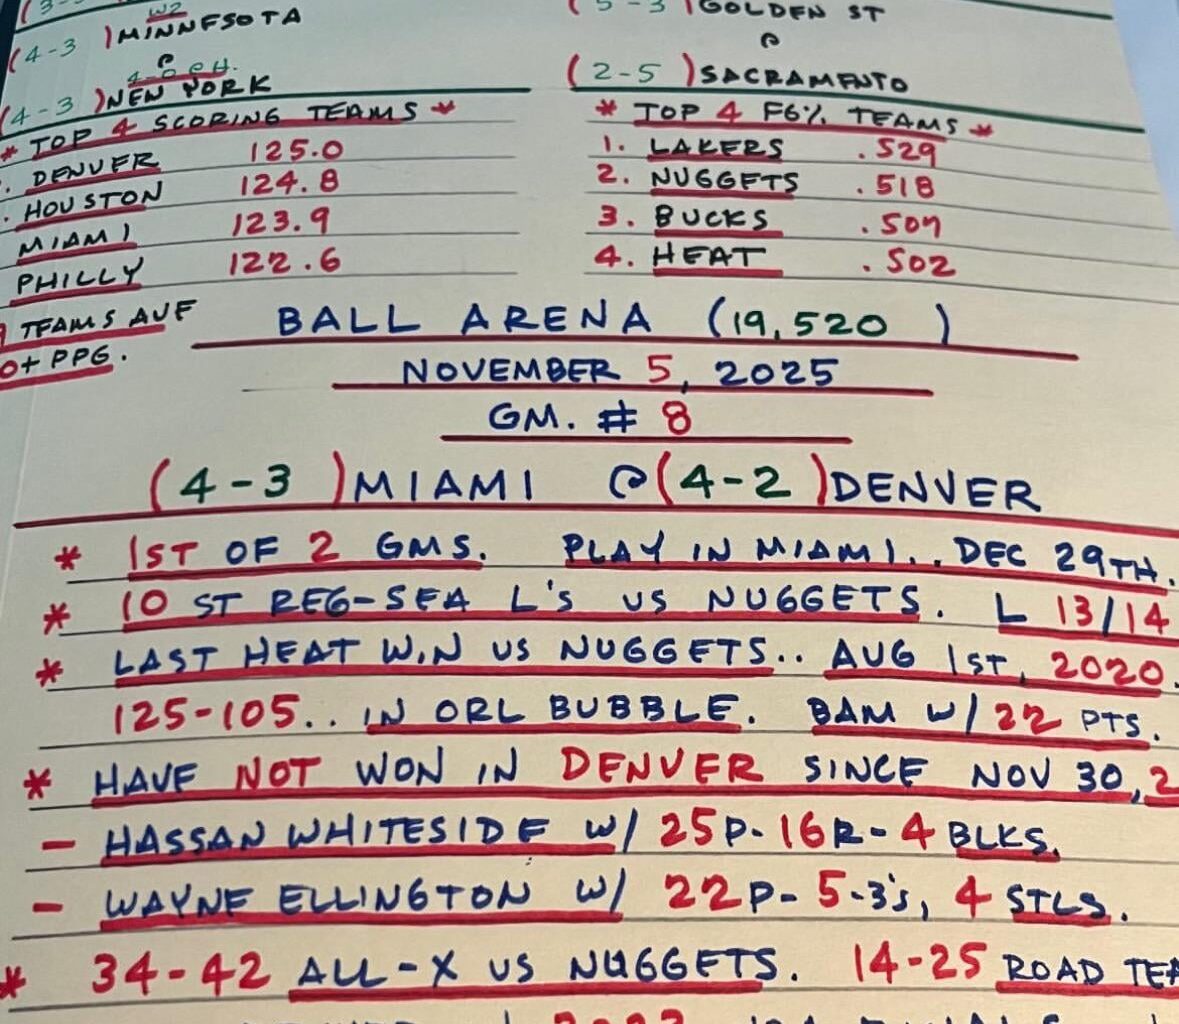 (3-
W2
(4-3 ) MINNESOTA
@
4-0 @ H.
(4-3 ) NEW YORK
* TOP 4 SCORING TEAMS *
. DENVER 125.0
. HOUSTON 124.8
MIAMI 123.9
PHILLY 122.6
TEAMS AVE
0+ PPG.
(5-3 ) GOLDEN ST
@
(2-5 ) SACRAMENTO
* TOP 4 FG% TEAMS *
1. LAKERS .529
2. NUGGETS .518
3. BUCKS .507
4. HEAT .502
BALL ARENA (19,520 )
NOVEMBER 5, 2025
GM. # 8
(4-3 ) MIAMI @ (4-2 ) DENVER
* 1ST OF 2 GMS. PLAY IN MIAMI.. DEC 29TH.
* 10 ST REG-SEA L'S VS NUGGETS. L 13/14
* LAST HEAT WIN VS NUGGETS.. AUG 1ST, 2020.
125-105.. IN ORL BUBBLE. BAM W/ 22 PTS.
* HAVE NOT WON IN DENVER SINCE NOV 30, 2
- HASSAN WHITESIDE W/ 25P-16R-4 BLKS.
- WAYNE ELLINGTON W/ 22P-5-3's, 4 STLS.
* 34-42 ALL-X VS NUGGETS. 14-25 ROAD TEA